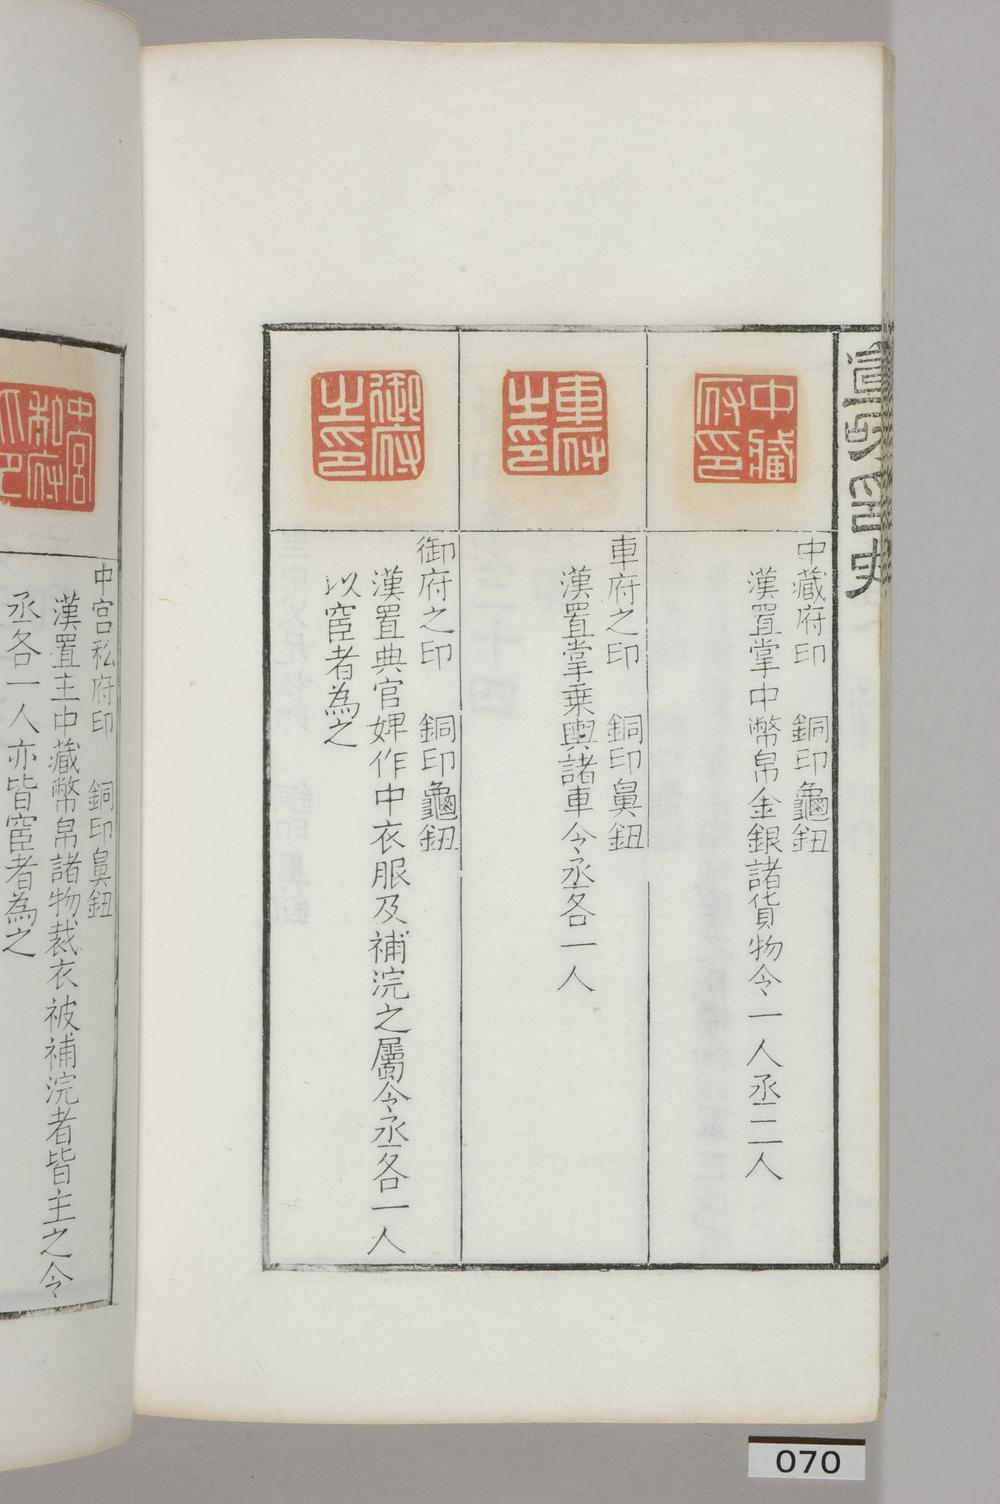 宣和印史
中藏府印
中藏府印 銅印龜鈕
漢置掌中幣帛金銀諸貨物令一人丞二人
車府之印
車府之印 銅印鼻鈕
漢置掌乗輿諸車令丞各一人
御府之印
御府之印 銅印龜鈕
漢置典官婢作中衣服及補浣之屬令丞各一人
以宦者為之
中宮私府印
中宮私府印 銅印鼻鈕
漢置主中藏幣帛諸物裁衣被補浣者皆主之令
丞各一人亦皆宦者為之
070